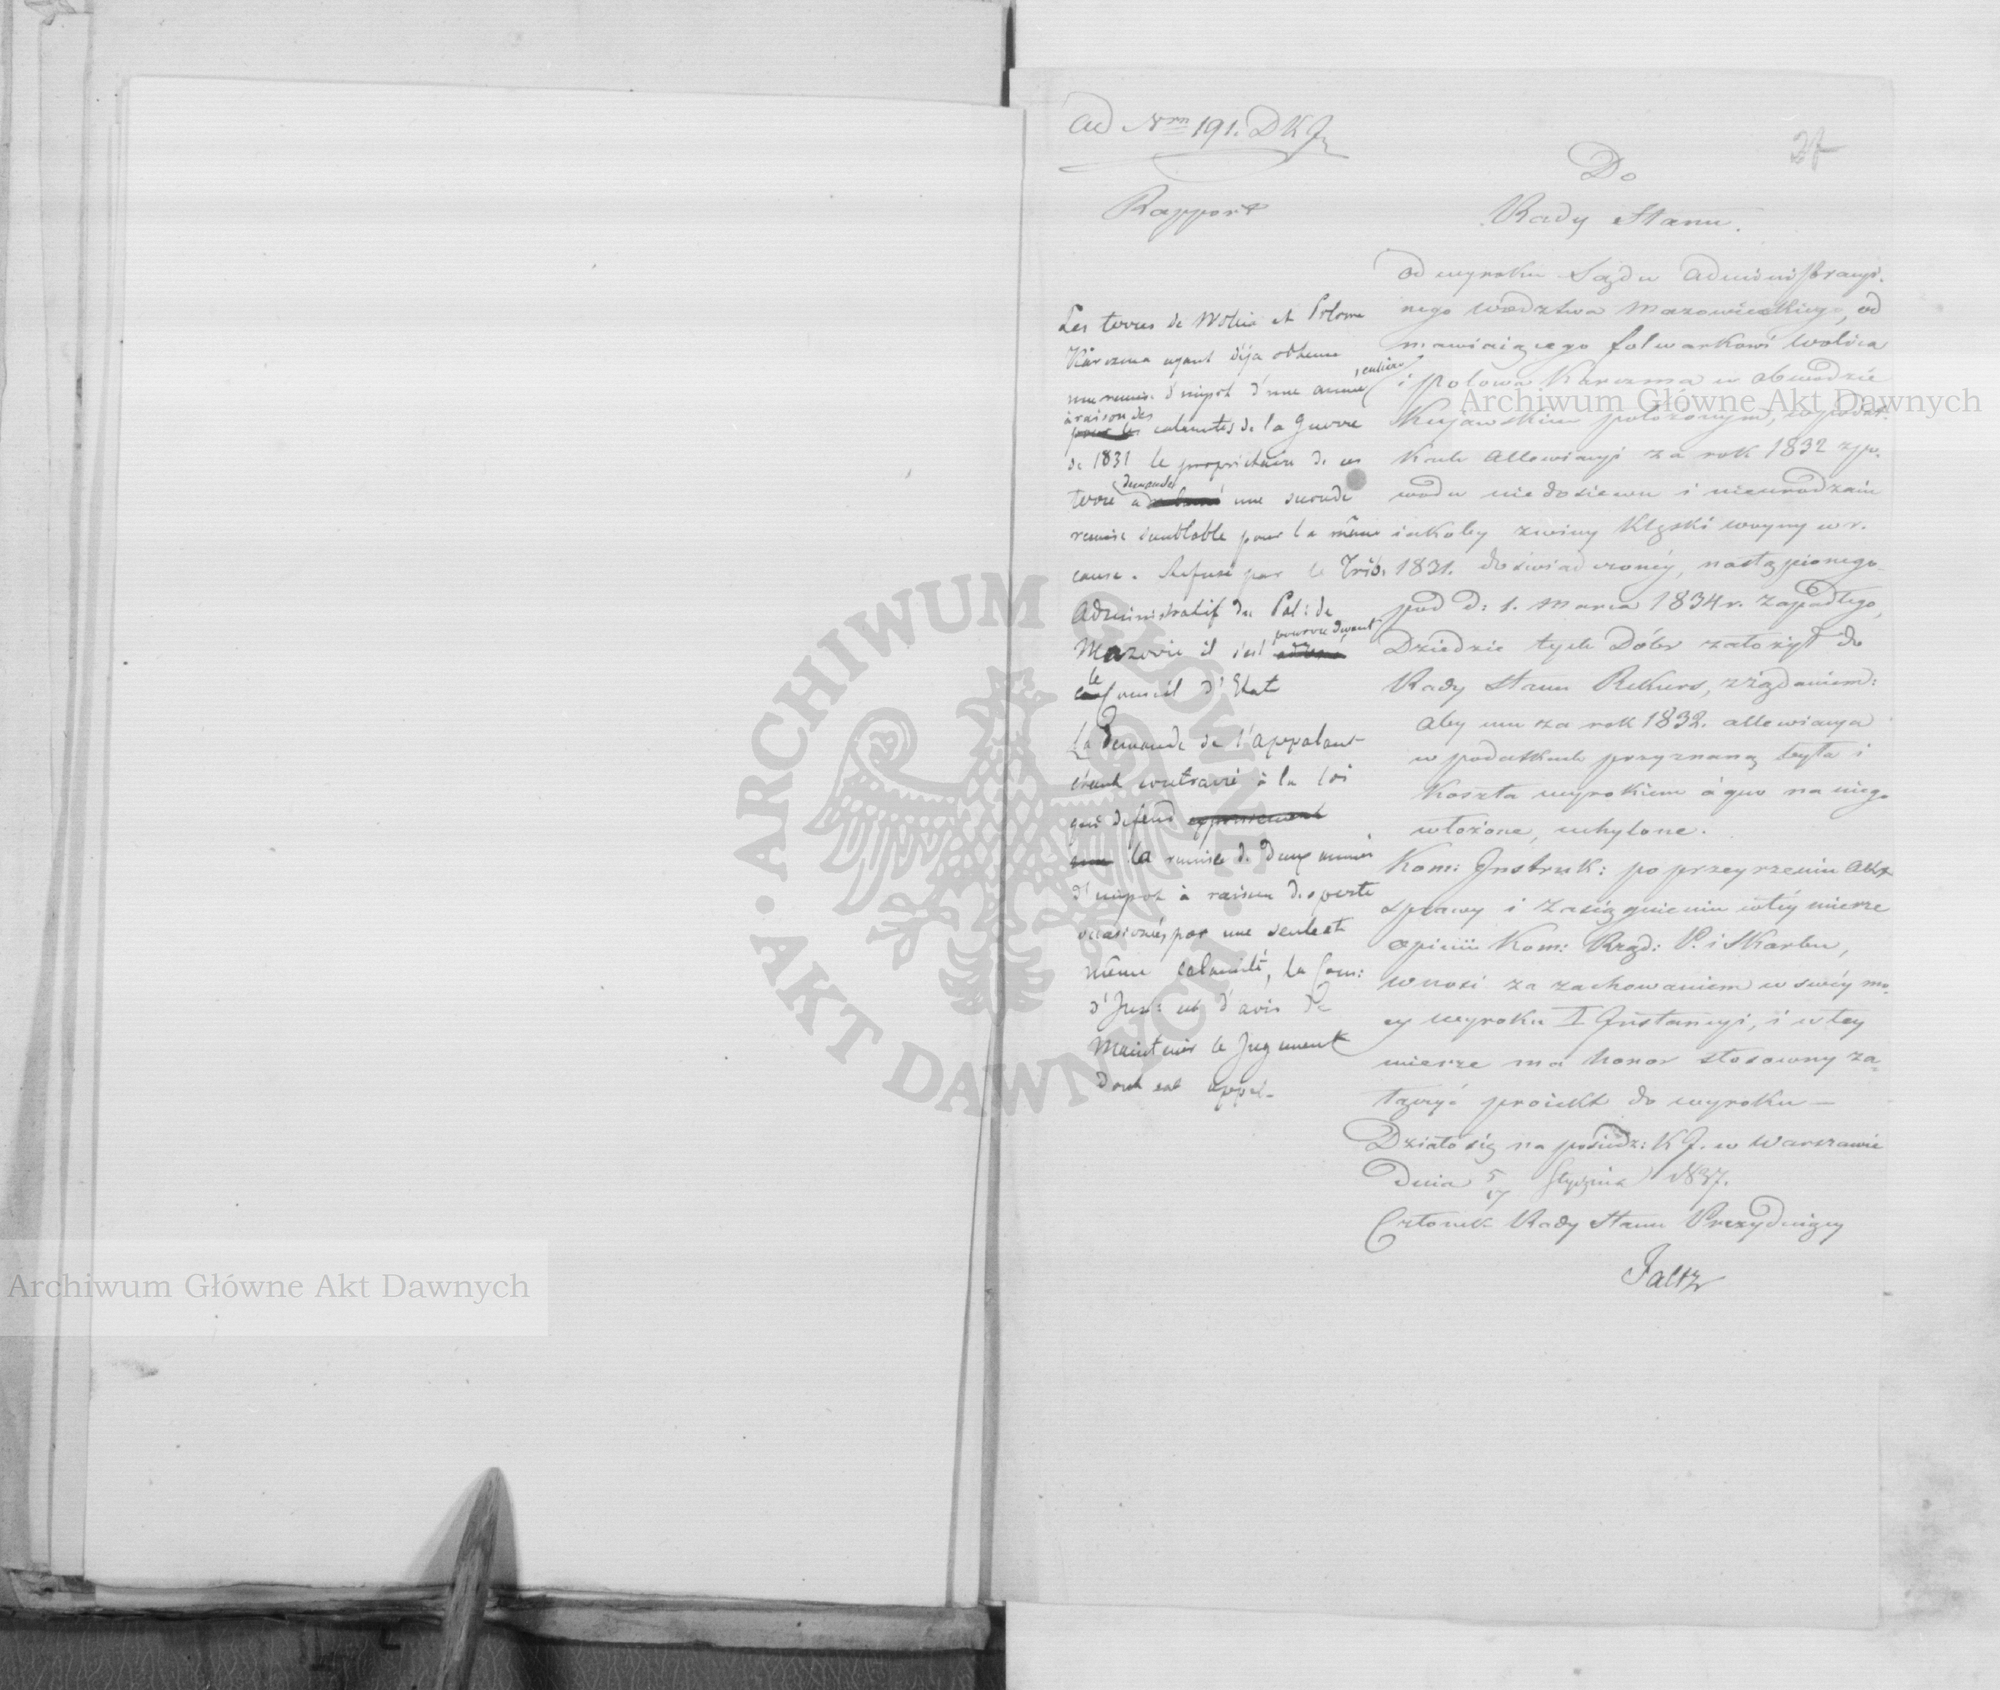 ad Nrm 191. D K J
27
Rapport
Les terres de Wolica et Polowa
Karczma ayant déja obtenu
une remise d'impot d'une année entière
à raison des
pour les calamités de la Guerre
de 1831 le propriétaire de ces
terre a demandé une seconde
remise semblable pour la même
cause. Refusé par le Trib.
Administratif du Pal: de
Mazovie il s'est pourvu devant
le Conseil d'Etat
La Demande de l'appelant
étant contraire à la loi
qui defend
la remise de Deux années
d'impot à raison des perte
occasionnés par une seule et
même calamité, la Com:
d'Jns: est d'avis de
Maintenir le Jugement
Dont est appel.
Do
Rady Stanu.
Od wyroku Sądu Administracyj-
nego Wodztwa Mazowieckiego, od
mawiaiącego folwarkowi Wolica
i Polowa Karczma w obwodzie
Kujawskim położonym, w podat.
kach allewiacyi za rok 1832 z po-
wodu niedosiewu i nieurodzaiu
iakoby z winy klęski woyny w r.
1831. doświadczonéy, nastąpionego
pod d: 1. Marca 1834 r. zapadłego,
Dziedzic tych Dóbr założył do
Rady Stanu Rekurs, z żądaniem:
aby mu za rok 1832. allewiacya
w podatkach przyznaną była i
koszta wyrokiem á quo na niego
włożone, uchylone.
Kom: Instruk: po przeyrzeniu Akt
sprawy i zasięgnieniu w téy mierze
opinii Kom: Rząd: P. i Skarbu,
wnosi za zachowaniem w swéy mo-
cy wyroku I Instancyi, i w tey
mierze ma honor stosowny za-
łączyć proiekt do wyroku —
Działo się na posiedz: K J. w Warszawie
Dnia 5/17 Stycznia 1837.
Członek Rady Stanu Prezyduiący
Faltz
Archiwum Główne Akt Dawnych
Archiwum Główne Akt Dawnych
ARCHIWUM GŁÓWNE
· AKT DAWNYCH ·